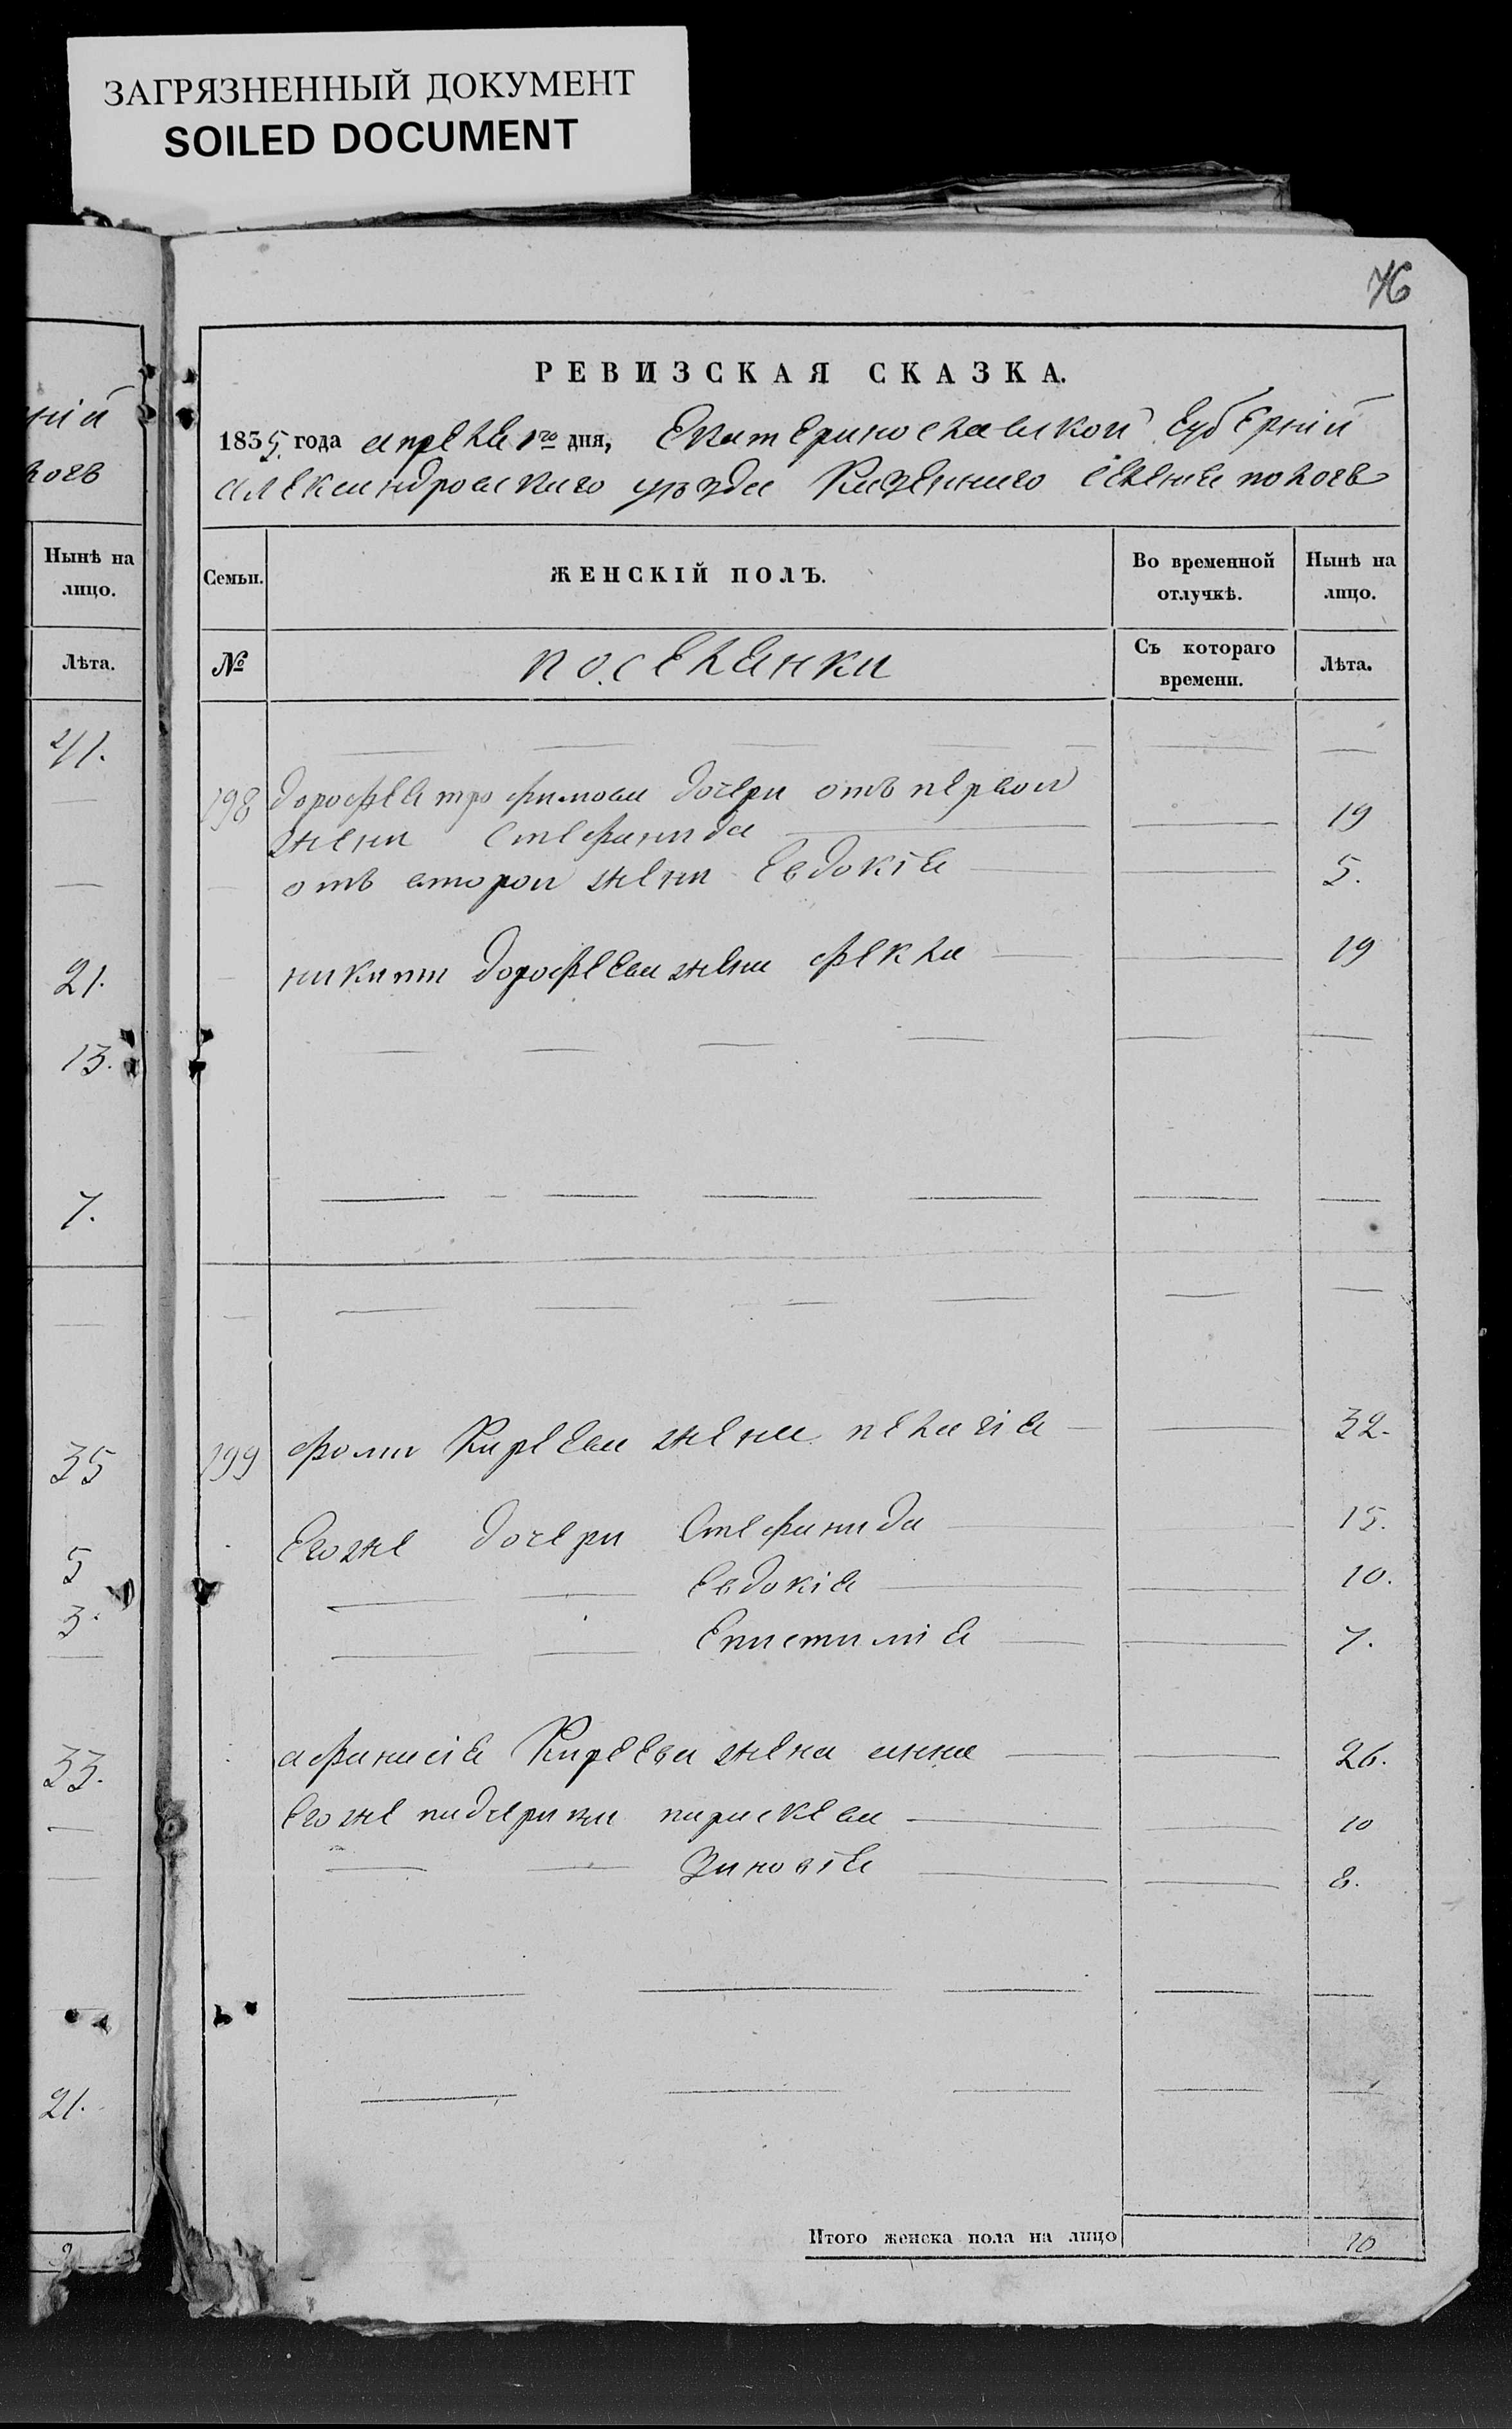 ЗАГРЯЗНЕННЫЙ ДОКУМЕНТ
SOILED DOCUMENT
76
РЕВИЗСКАЯ СКАЗКА.
1835. года апреля 1го дня, Екатеринославской Губерніи
Александровскаго уѣзда Казеннаго селенія пологъ
Семьи. ЖЕНСКІЙ ПОЛЪ. Во временной отлучкѣ. Нынѣ на лицо.
№ поселянки Съ котораго времени. Лѣта.
198 дорофея трофимова дочери отъ первои
жени Стефанида 19
отъ второи жени Евдокія 5.
никити дорофеева жена фекла 19
199 фоми Киреева жена пелагія 32.
Егоже дочери Стефанида 15.
Евдокія 10.
Епистимія 7.
афанасія Киреева жена анна 26.
Егоже падчерики параскева 10
Зиновія 8.
Итого женска пола на лицо 10
ніи
логъ
Нынѣ на
лицо.
Лѣта.
41.
21.
13.
7.
35
5
3.
33.
21.